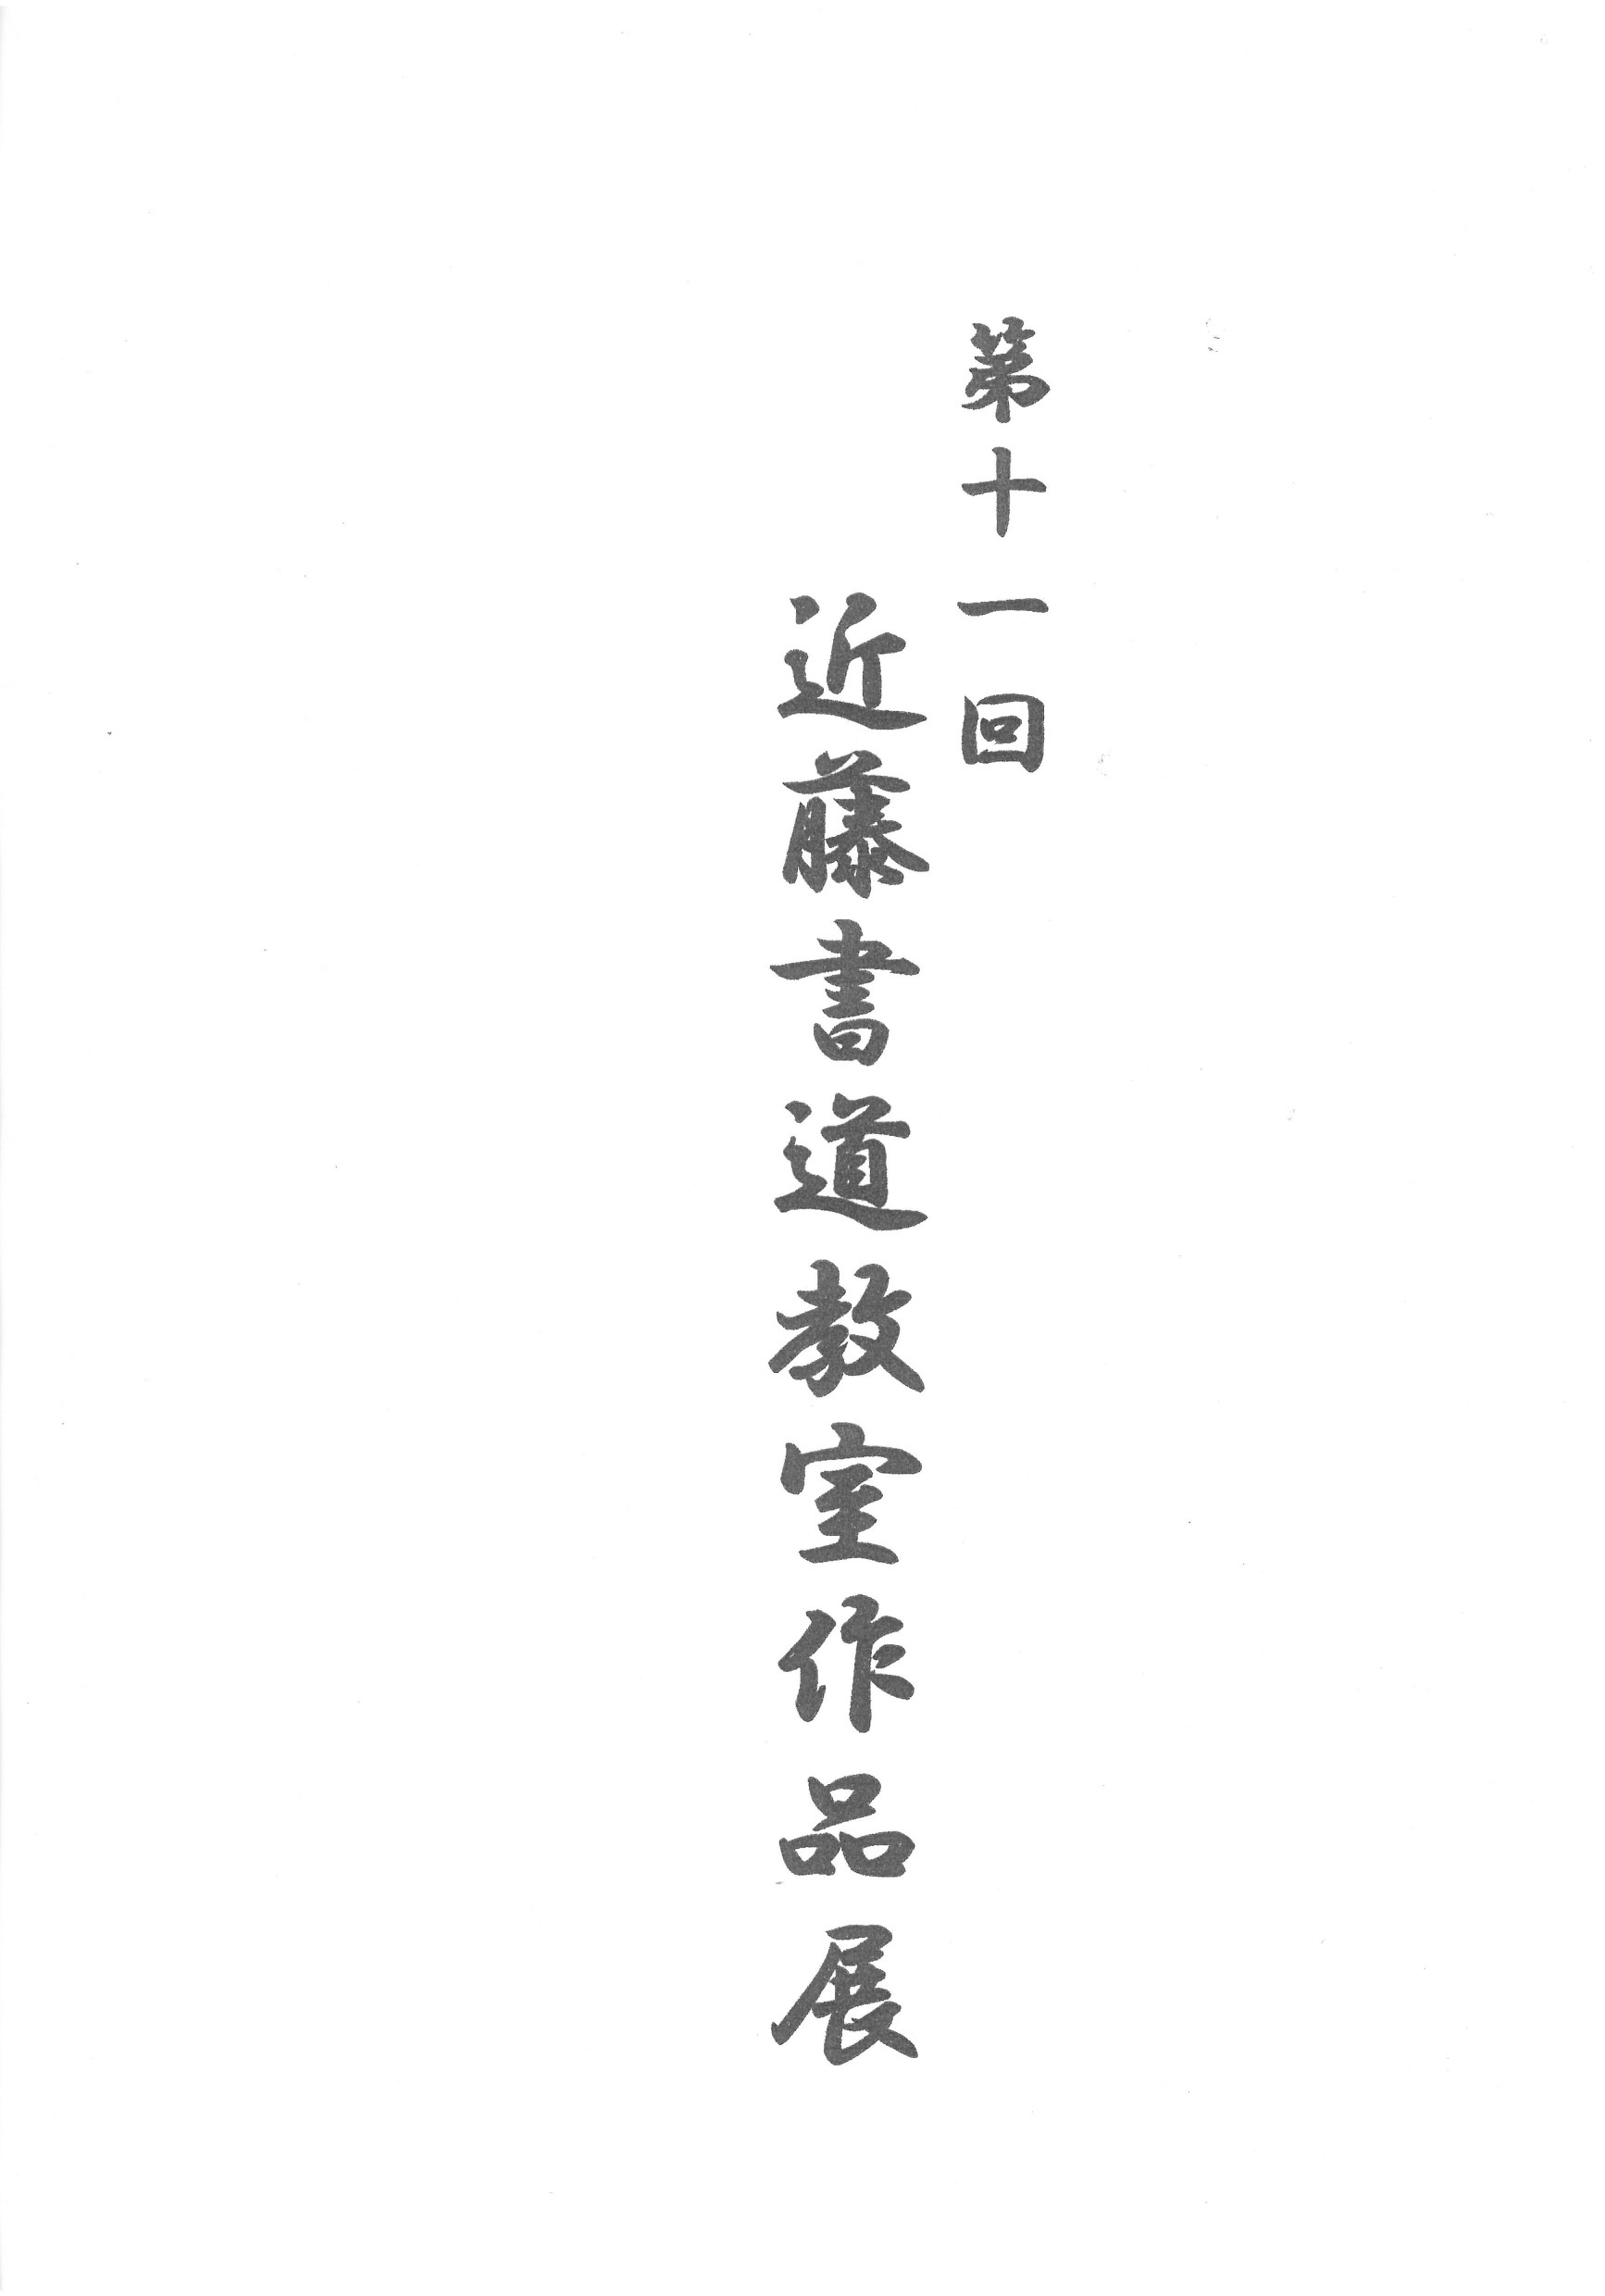 第十一回
近藤書道教室作品展